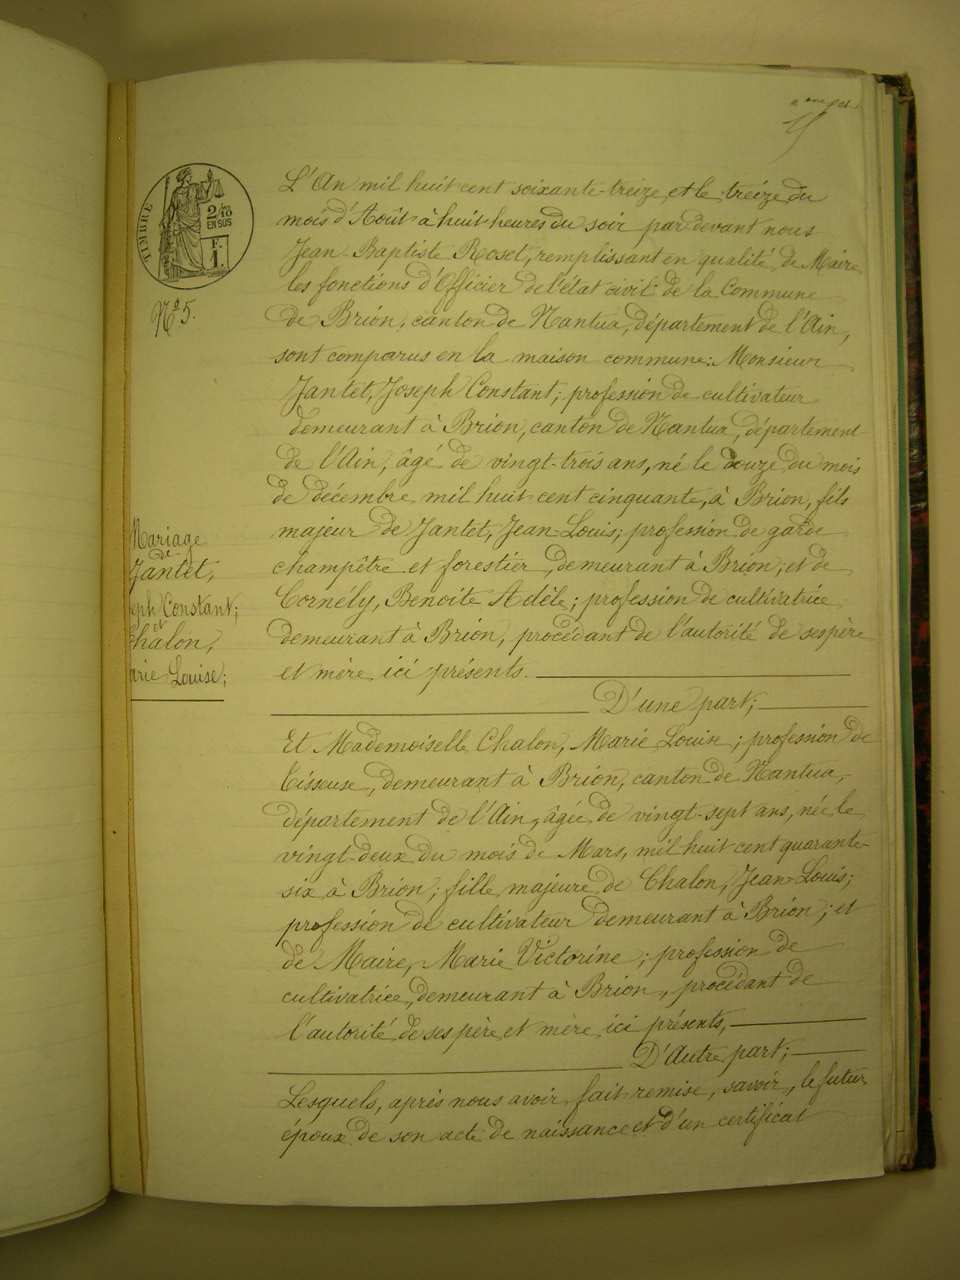 15
TIMBRE
2/10
EN SUS
F.
1.
No 5.
Mariage
de
Jantet,
eph Constant;
et
Chalon,
arie Louise;
L'An mil huit cent soixante-treize, et le treize du
mois d'Août à huit heures du soir par devant nous
Jean-Baptiste Roset, remplissant en qualité de Maire
les fonctions d'Officier de l'état civil de la Commune
de Brion, canton de Nantua, département de l'Ain,
sont comparus en la maison commune: Monsieur
Jantet, Joseph Constant; profession de cultivateur
demeurant à Brion, canton de Nantua, département
de l'Ain, âgé de vingt-trois ans, né le du mois
de décembre mil huit cent cinquante, à Brion, fils
majeur de Jantet, Jean-Louis; profession de garde
champêtre et forestier, demeurant à Brion; et de
Cornély, Benoite Adèle; profession de cultivatrice
demeurant à Brion, procédant de l'autorité de ses père
et mère ici présents.
D'une part;
Et Mademoiselle Chalon, Marie Louise; profession de
Tisseuse, demeurant à Brion, canton de Nantua,
département de l'Ain, âgée de vingt-sept ans, née le
vingt-deux du mois de Mars, mil huit cent quarante-
six à Brion; fille majeure de Chalon, Jean-Louis;
profession de cultivateur demeurant à Brion; et
de Maire, Marie Victorine; profession de
cultivatrice, demeurant à Brion, procédant de
l'autorité de ses père et mère ici présents,
D'Autre part;
Lesquels, après nous avoir fait remise, savoir, le futur
époux de son acte de naissance et d'un certificat